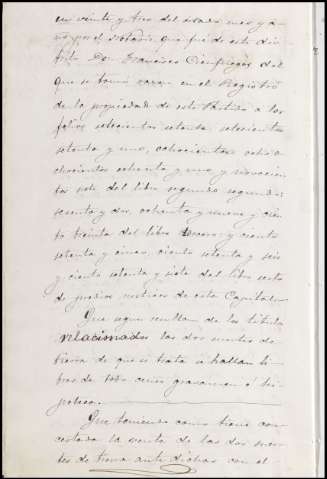 en veinte y tres del mismo mes y a-
ño por el Notario que fué de este dis-
trito Don Francisco Cienfuegos del
que se tomó razon en el Registro
de la propiedad de este Partido a los
folios setecientos setenta, setecientos
setenta y uno, ochocientos ochenta
ochocientos ochenta y uno y novecien
tos siete del libro segundo
sesenta y dos, ochenta y nueve y cien
to treinta del libro tercero y ciento
setenta y cinco, ciento setenta y seis
y ciento setenta y siete del libro sesto
de predios rusticos de esta Capital=
Que segun resultan de los titulos
relacionados las dos suertes de
tierra de que se trata se hallan li-
bres de todo censo gravamen é hi-
poteca.
Que teniendo como tiene con-
certada la venta de las dos suer-
tes de tierra ante dichas con el